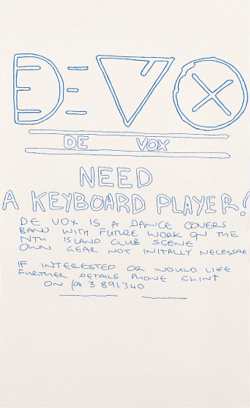 DE VOX
DE VOX
NEED
A KEYBOARD PLAYER!
DE VOX IS A DANCE COVERS
BAND WITH FUTURE WORK ON THE
NTH ISLAND CLUB SCENE
OWN GEAR NOT INITALLY NECESSAR
IF INTERESTED OR WOULD LIKE
FURTHER DETAILS PHONE CLINT
ON 3 891340